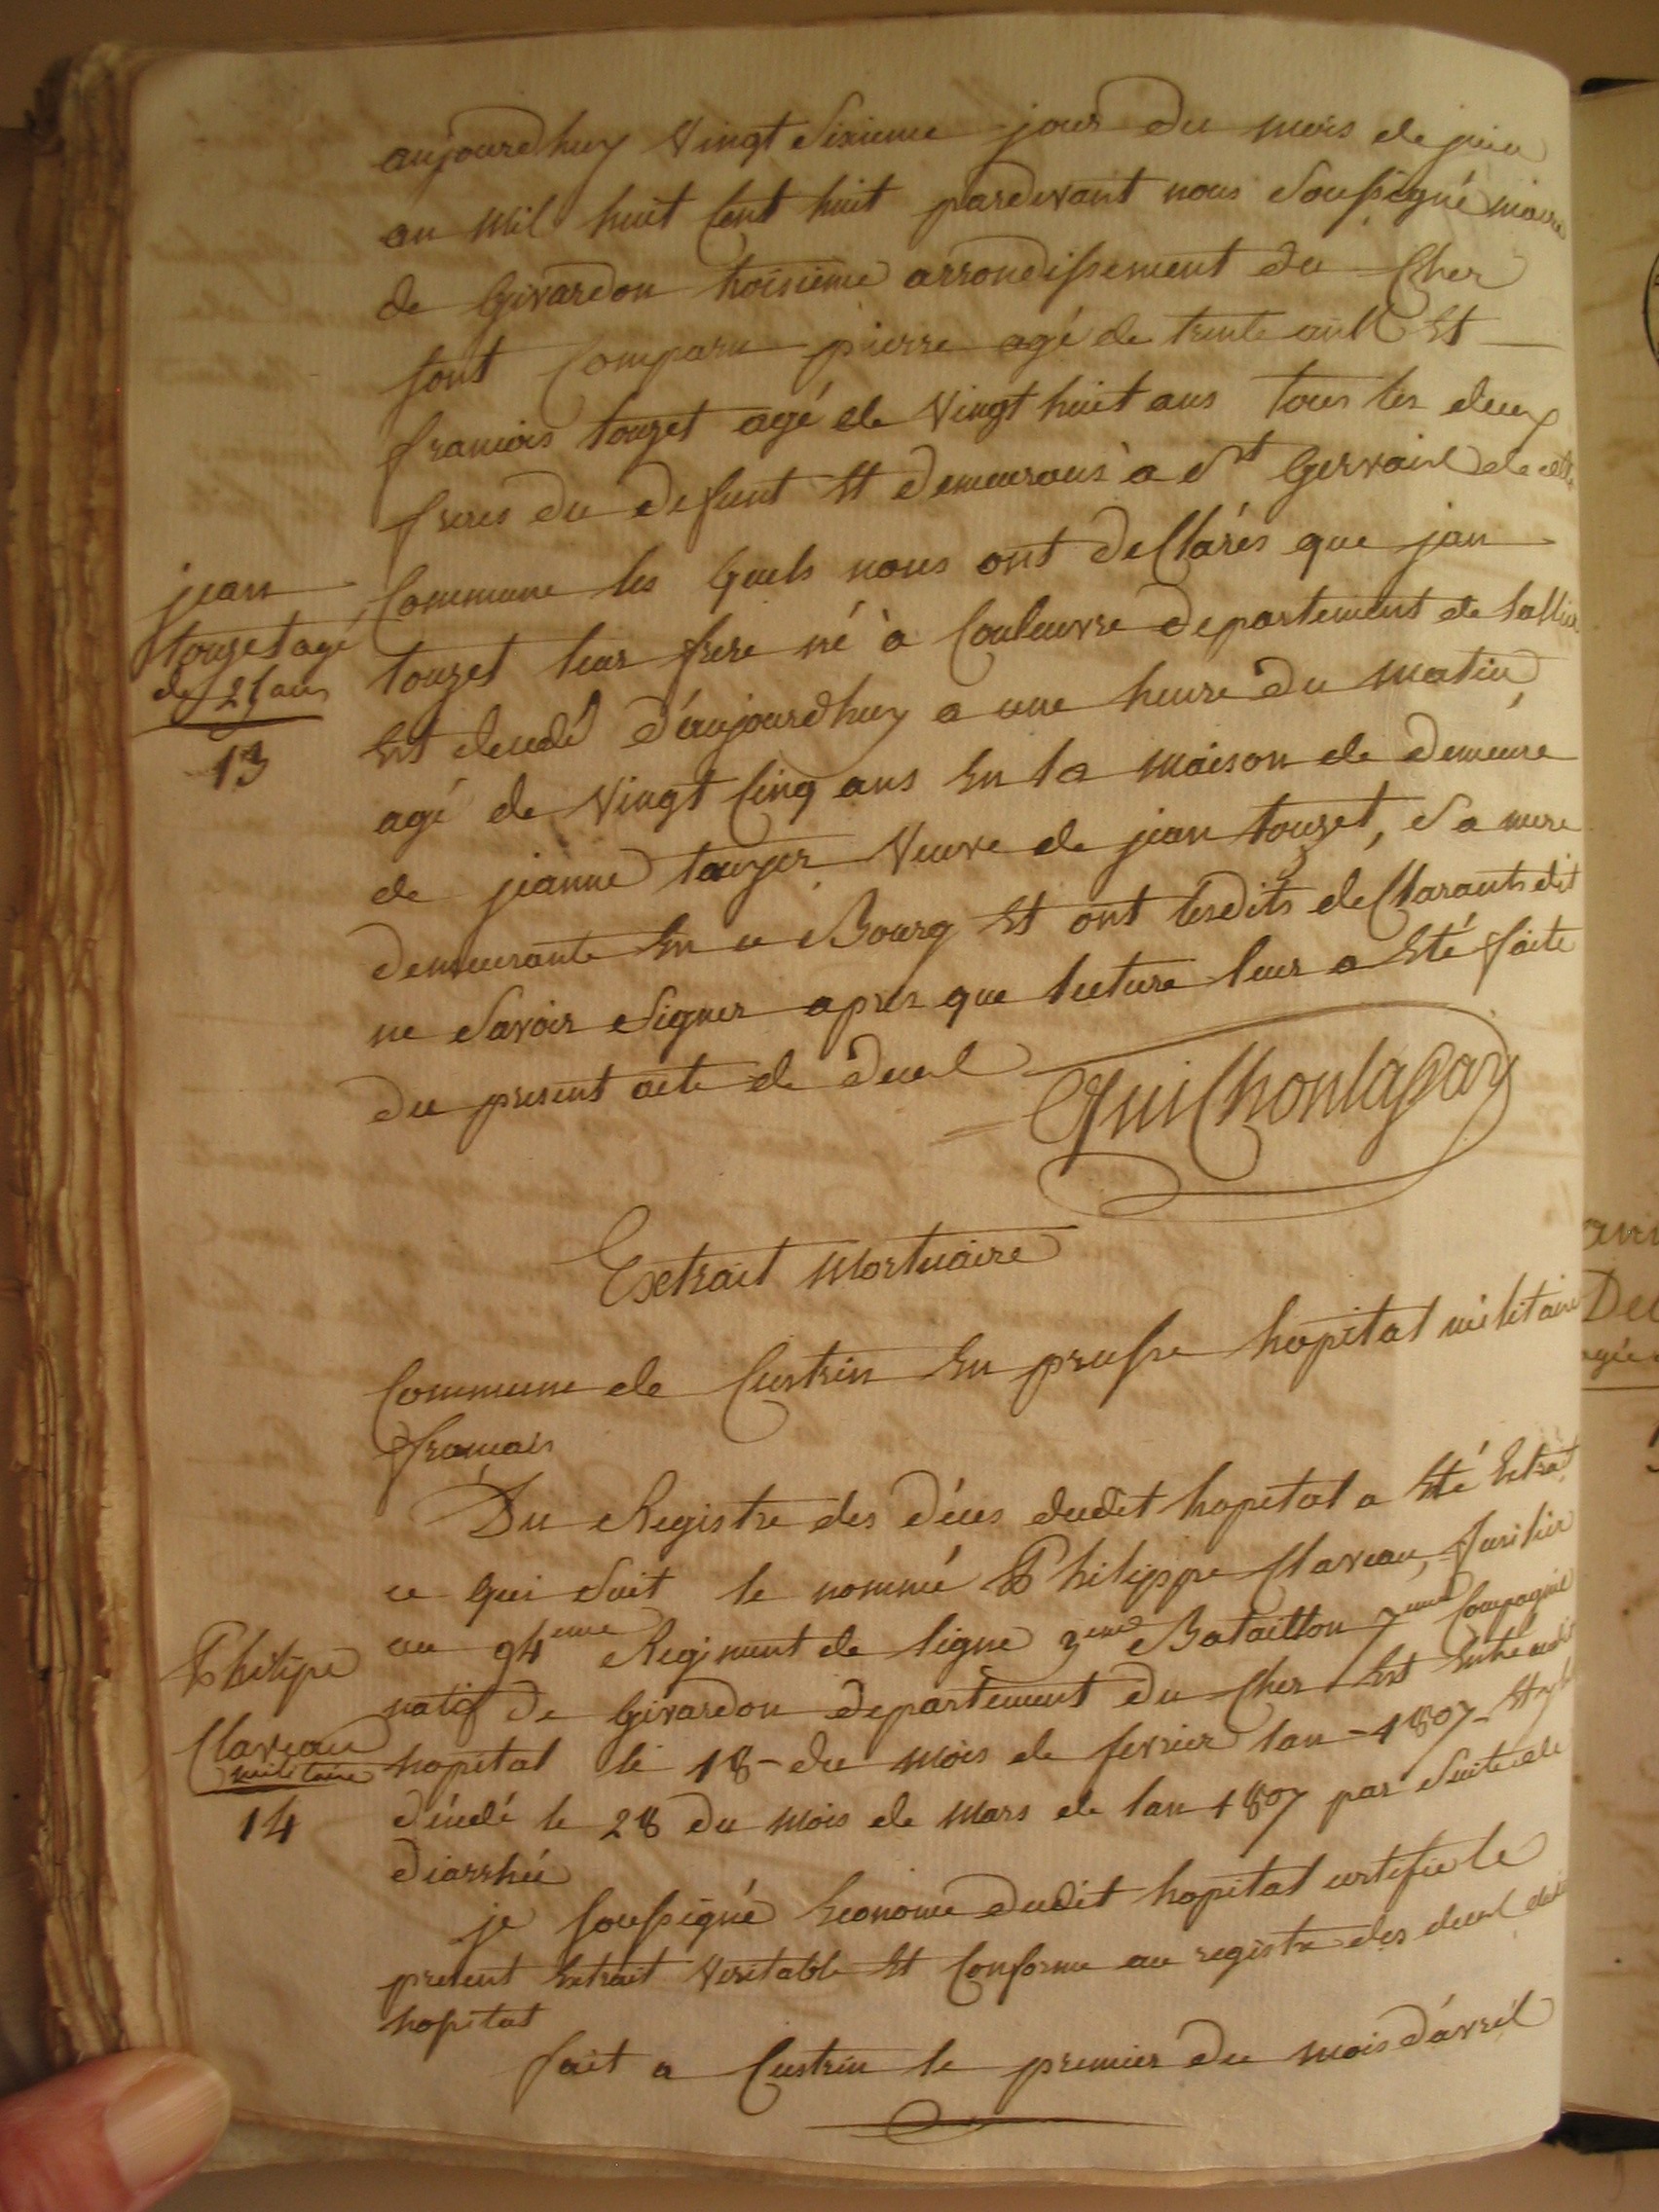 aujourdhuy Vingt Sixieme jour du mois de juin
an mil huit Cent huit pardevant nous Soussigné maire
de Givardon troisieme arrondissement du Cher
sont Comparu pierre agé de trente Et
francois touzet agé de Vingt huit ans tous les deux
freres du defunt Et demeurans a St Gervais de cette
jean
touzet agé
de 25 ans
13
Commune les quels nous ont declarés que jan
touzet leur frere né à Couleuvre departement de lallier
Est decedé d'aujourdhuy a une heure du matin
agé de Vingt Cinq ans En la maison de demeure
de jeanne Veuve de jean touzet, Sa mere
demeurante En ce Bourg Et ont lesdits declarants dit
ne Savoir Signer apres que lecture leur a Eté faite
du present acte de decel
Guichonlagay
Extrait Mortuaire
Commune de Custrin En prusse hopital militaire
francais
Du Registre des déces dudit hopital a Eté Extrait
ce qui Suit le nommé Philippe Claveau, fusilier
au 94eme Regiment de ligne 3eme Bataillon 7eme Compagnie
Philipe
Claveau
militaire
14
natif de Givardon departement du Cher Est Entré audit
hopital le 18 du mois de fevrier lan 1807 Et y
décédé le 28 du mois de Mars de lan 1807 par Suite de
diarrhée
je soussigné Econome dudit hopital certifie le
present Extrait Veritable Et Conforme au registre des decel dudit
hopital
fait a Custrin le premier du mois d'avril